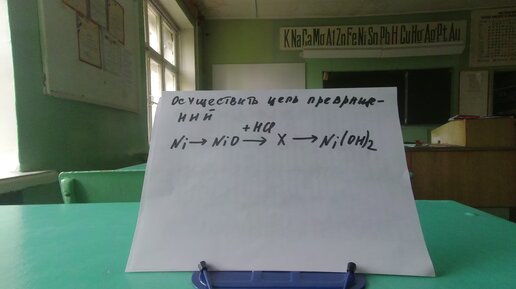 K Na Ca Mg Al Zn Fe Ni Sn Pb H Cu Hg Ag Pt Au
Осуществить цепь превраще-
ний
+HCl
Ni → NiO → X → Ni(OH)2